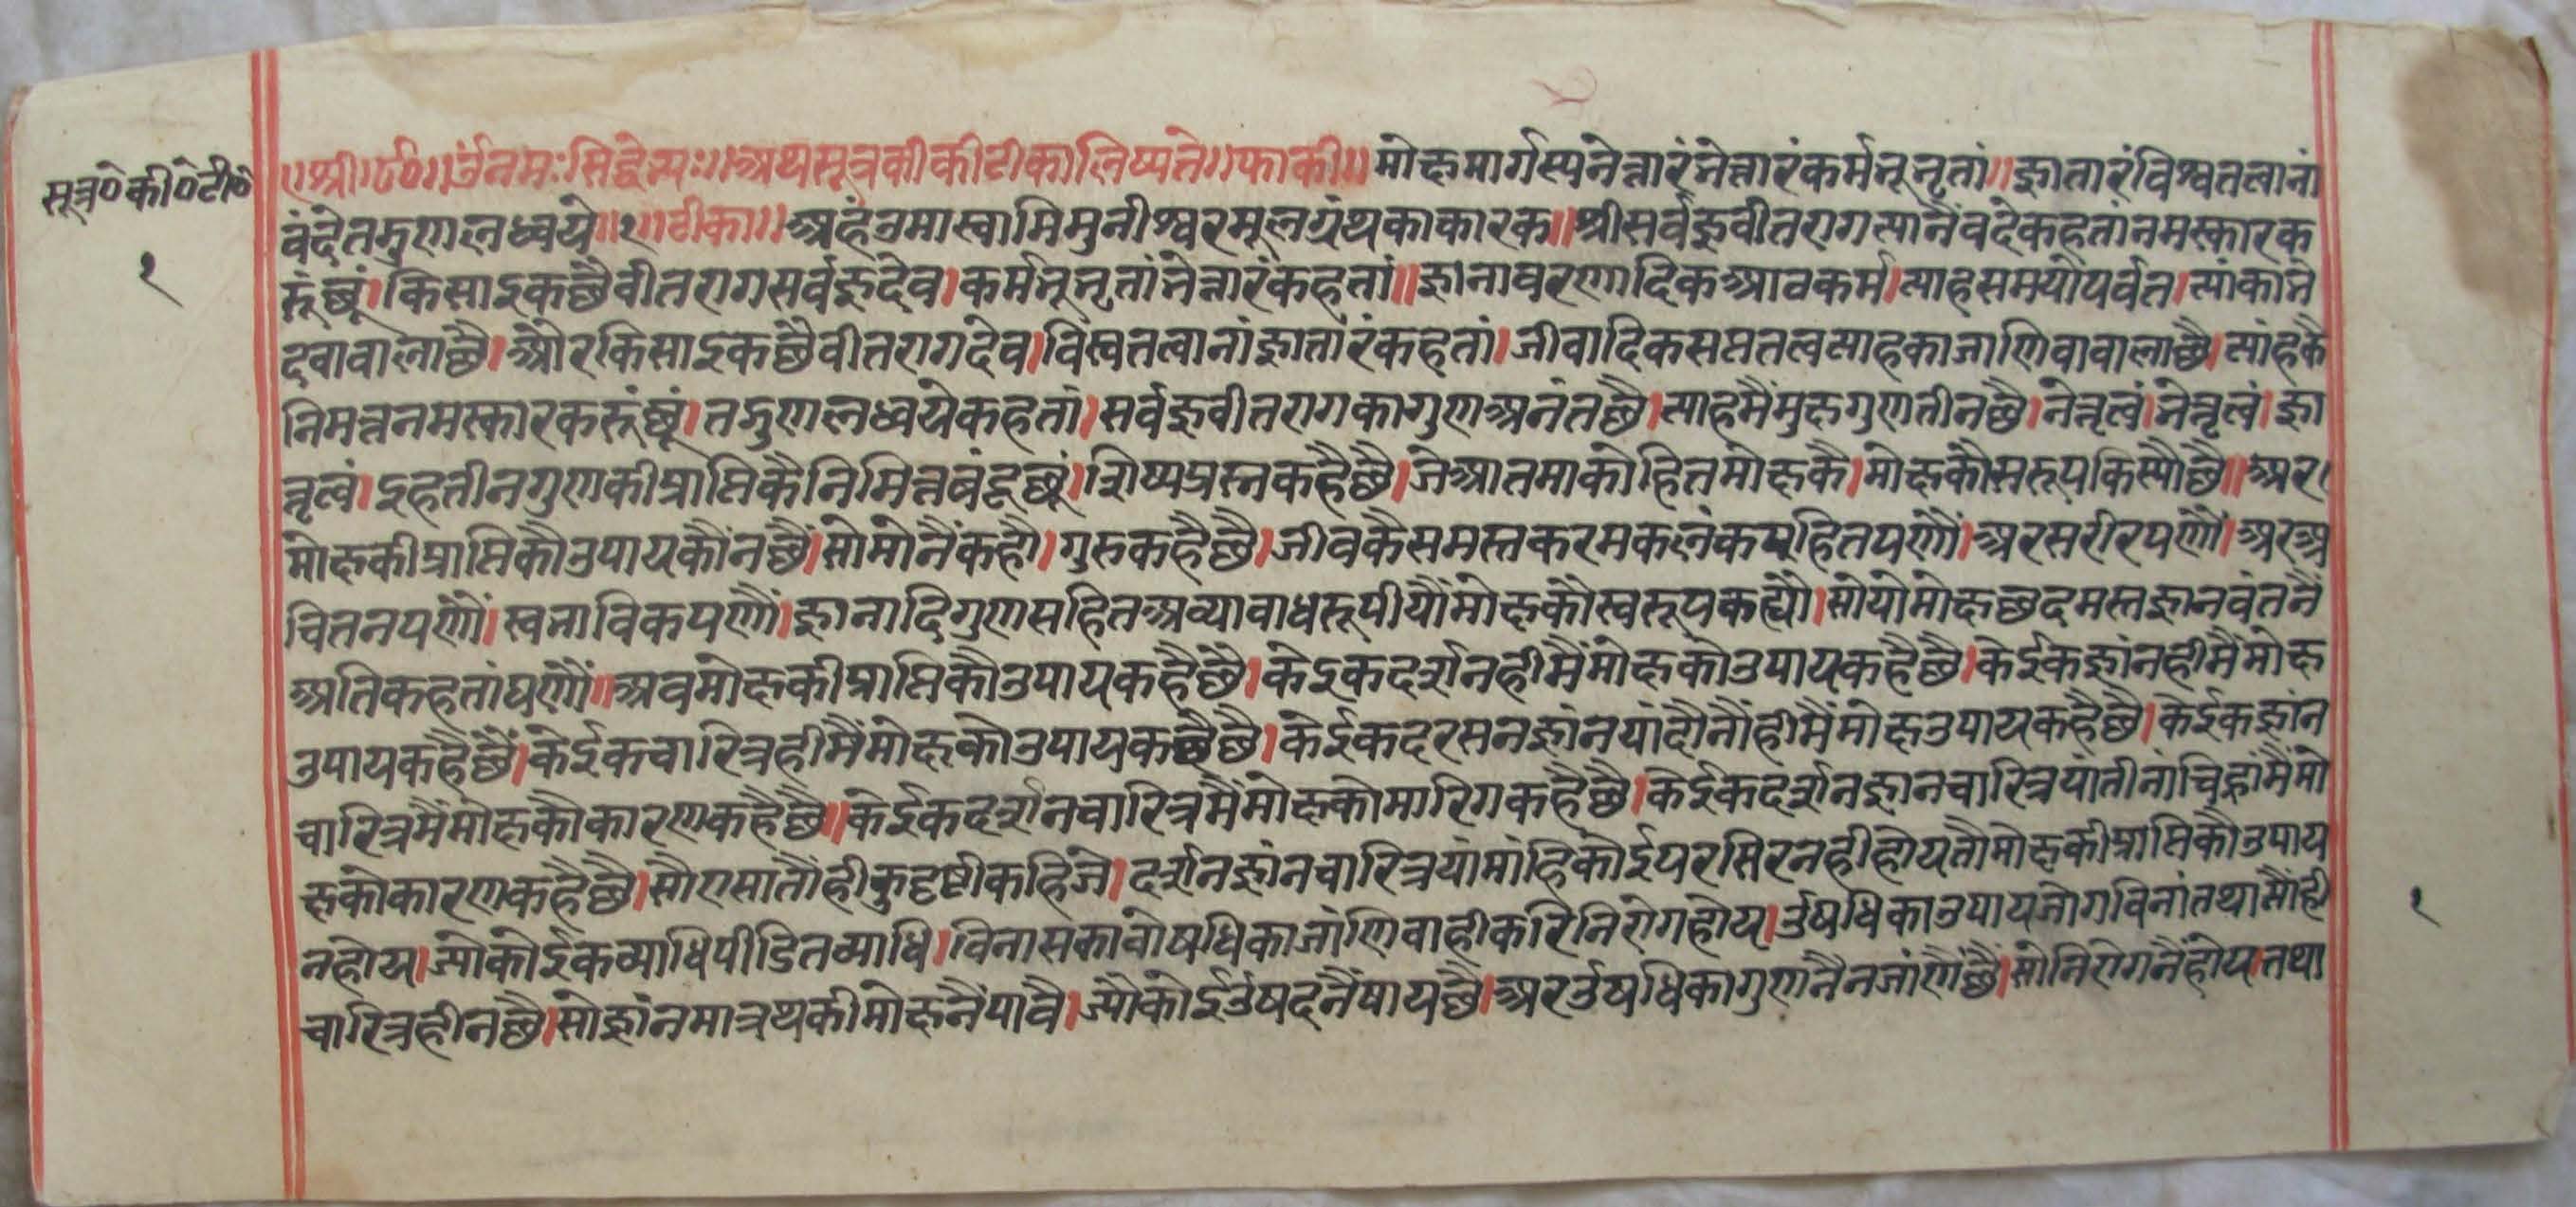 सूत्र०की०टी०
१
।श्री।ॐ।।र्उनमःसिद्धेभ्यः।।अथसूत्रकीकीटीकालिष्यते।।फाकी।।मोक्षमार्गस्यनेत्तारंभेत्तारंकर्मभूभृतां।।ज्ञातारंविश्वतत्वानां
वंदेतद्गुणलध्वये।।१।।टीका।।अहंउमास्वामिमुनीश्वरमूलग्रंथकाकारक।।श्रीसर्वज्ञवीतरागत्यानैंवंदेकहतांनमस्कारक
रूंछूं।किसाइकछैवीतरागसर्वज्ञदेव।कर्मभूभृतांभेत्तारंकहतां।।ज्ञानावरणादिकआठकर्म।त्याहसमयोपर्वत।त्यांकाभे
दवावालाछै।औरकिसाइकछैवीतरागदेव।विस्वतत्वानांज्ञातारंकहतां।जीवादिकसप्ततत्वत्याहकाजाणिवावालाछै।त्यांहकै
निमत्तनमस्कारकरूंछूं।तद्गुणलध्वयेकहतां।सर्वज्ञवीतरागकागुणअनंतछै।त्याहमैंमुक्षगुणतीनछै।नेतृत्वं।भेतृत्वं।ज्ञा
तृत्वं।इहतीनगुणकीप्राप्तिकैनिमित्तवंदूछूं।शिष्यप्रस्नकहैछै।जेआतमाकोहितमोक्षकै।मोक्षकौसरूपकिस्यौछै।।अर।
मोक्षकीप्राप्तिकौउपायकौंनछै।सोमोनैंकहौ।गुरुकहैछै।जीवकैसमस्तकरमकलंकरहितपणौं।अरसरीरपणौं।अरअ
चिंतनपणौं।स्वभाविकपणौं।ज्ञानादिगुणसहितअव्यावाधरूपीयौंमोक्षकौस्वरूपकह्यौ।सोयोमोक्षछदमस्तज्ञानवंतनैं
अतिकहतांघणौं।।अवमोक्षकीप्राप्तिकौउपायकहैछै।केइकदर्शनहीमैंमोक्षकौउपायकहैछै।केईकज्ञांनहीमैंमोक्ष
उपायकहैछै।केईकचारित्रहीमैंमोक्षकौउपायकहैछै।केईकदरसनज्ञांनयांदौनौंहीमैंमोक्षउपायकहैछै।केईकज्ञांन
चारित्रमैंमोक्षकौकारणकहैछै।।केईकदर्शनचारित्रमैंमोक्षकोमारिगकहैछै।केईकदर्शनज्ञानचारित्रयांतीनांचिह्नांमैंमो
क्षकोकारणकहैछै।सौएसातौंहीकुद्दष्टीकहिजे।दर्शनज्ञांनचारित्रयांमांहिकोईपरसिरनहीहोयतौमोक्षकीप्राप्तिकौउपाय
नहोय।ज्योकोईकव्याधिपीडितव्याधि।विनासकावोषधिकाजांणिवाहीकरिनिरोगहोय।र्उषधिकाउपायजोगविनांतथासौंही
चारित्रहीनछै।सोज्ञांनमात्रथकीमोक्षनैंपावै।ज्यौकोईर्उषदनैंषायछै।अरर्उषधिकागुणनैनजांणैंछै।सोनिरोगनैंहोय।तथा
१